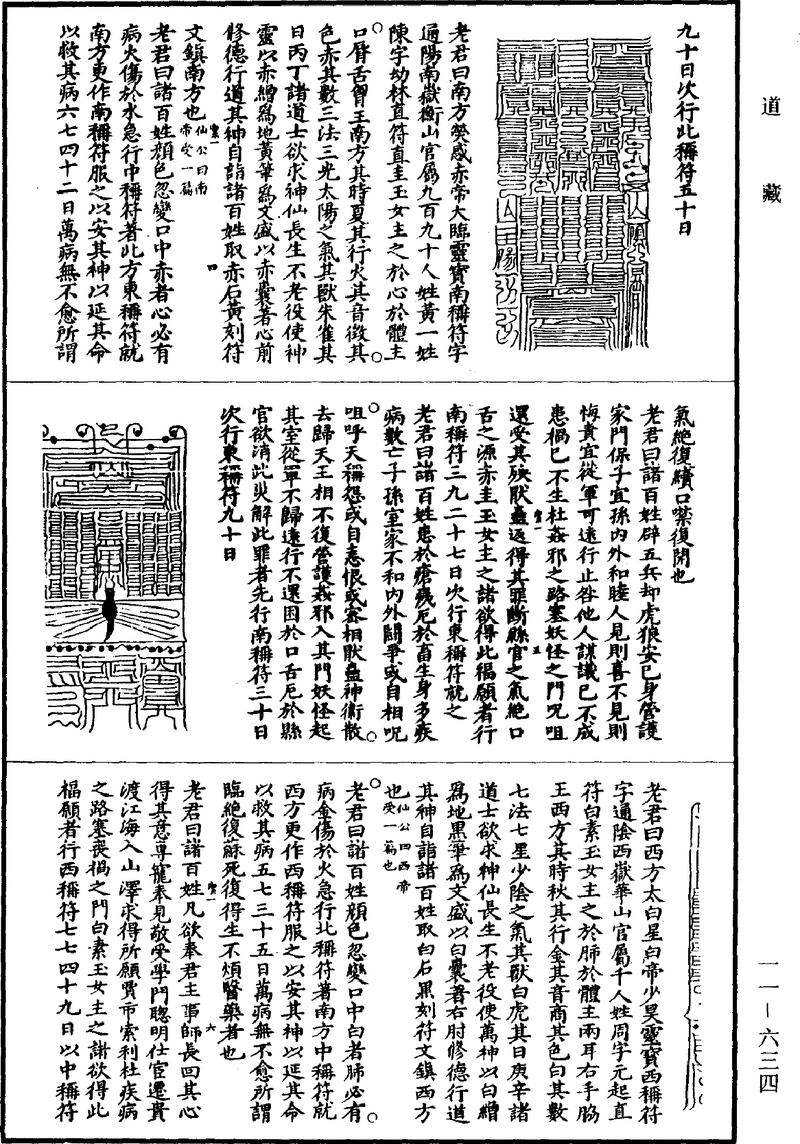 道藏
九十日次行此稱符五十日
老君曰南方熒惑赤帝大臨靈寶南稱符字
通陽南嶽衡山官屬九百九十人姓黃一姓
陳字幼林直符直圭玉女主之於心於體主
口脣舌胷王南方其時夏其行火其音徵其
色赤其數三法三光太陽之氣其獸朱雀其
日丙丁諸道士欲求神仙長生不老役使神
靈以赤繒爲地黃筆爲文盛以赤囊著心前
修德行道其神自詣諸百姓取赤石黃刻符
文鎮南方也仙公曰南帝受一篇
老君曰諸百姓顏色忽變口中赤者心必有
病火傷於水急行中稱符著此方東稱符就
南方更作南稱符服之以安其神以延其命
以救其病六七四十二日萬病無不愈所謂
氣絶復續口噤復開也
老君曰諸百姓辟五兵却虎狼安已身管護
家門保子宜孫内外和睦人見則喜不見則
悔責宜從軍可遠行止咎他人謀議已不成
患禍已不生杜姦邪之路塞妖怪之門呪咀
還受其殃猒蠱返得其罪斷縣官之氣絶口
舌之源赤圭玉女主之諸欲得此福願者行
南稱符三九二十七日次行東稱符就之
老君曰諸百姓患於瘡殘厄於畜生身多疾
病數亡子孫室家不和内外鬪爭或自相呪
咀呼天稱怨或自恚恨或寃相猒蠱神術散
去歸天王相不復管護姦邪入其門妖怪起
其室從軍不歸遠行不還困於口舌厄於縣
官欲消此災解此罪者先行南稱符三十日
次行東稱符九十日
老君曰西方太白星白帝少昊靈寶西稱符
字通陰西嶽華山官屬千人姓周字元起直
符白素玉女主之於肺於體主兩耳右手脇
王西方其時秋其行金其音商其色白其數
七法七星少陰之氣其獸白虎其日庚辛諸
道士欲求神仙長生不老役使萬神以白繒
爲地黑筆爲文盛以白囊著右肘修德行道
其神自詣諸百姓取白石黑刻符文鎮西方
也仙公曰西帝受一篇也
老君曰諸百姓顏色忽變口中白者肺必有
病金傷於火急行北稱符著南方中稱符就
西方更作西稱符服之以安其神以延其命
以救其病五七三十五日萬病無不愈所謂
臨絶復穌死復得生不煩醫藥者也
老君曰諸百姓凡欲奉君主事師長回其心
得其意尊寵奉見敬受學門聰明仕官遷貴
渡江海入山澤求得所願賈市索利杜疾病
之路塞喪禍之門白素玉女主之謝欲得此
福願者行西稱符七七四十九日以中稱符
一一—六三四